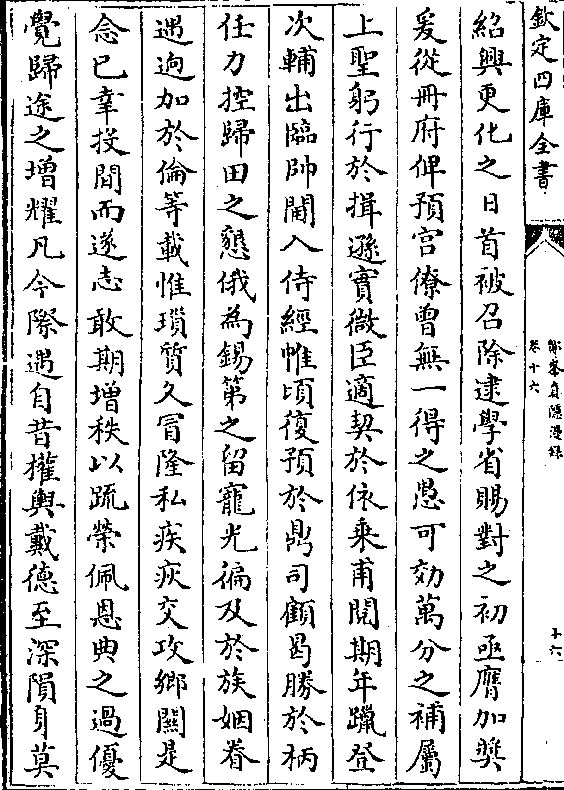 欽定四庫全書
鄮峯真隱漫録
卷十六
十六
紹興更化之日首被召除逮學省賜對之初亟膺加奬
爰從冊府俾預宫僚曾無一得之愚可効萬分之補屬
上聖躬行於揖遜實微臣適契於依乗甫閲期年躐登
次輔出臨帥閫入侍經帷頃復預於鼎司顧曷勝於柄
任力控歸田之懇俄為錫第之留寵光徧及於族姻眷
遇逈加於倫等載惟瑣質久冒隆私疾疢交攻鄉關是
念已幸投閒而遂志敢期增秩以疏榮佩恩典之過優
覺歸途之增耀凡今際遇自昔權輿戴德至深隕身莫